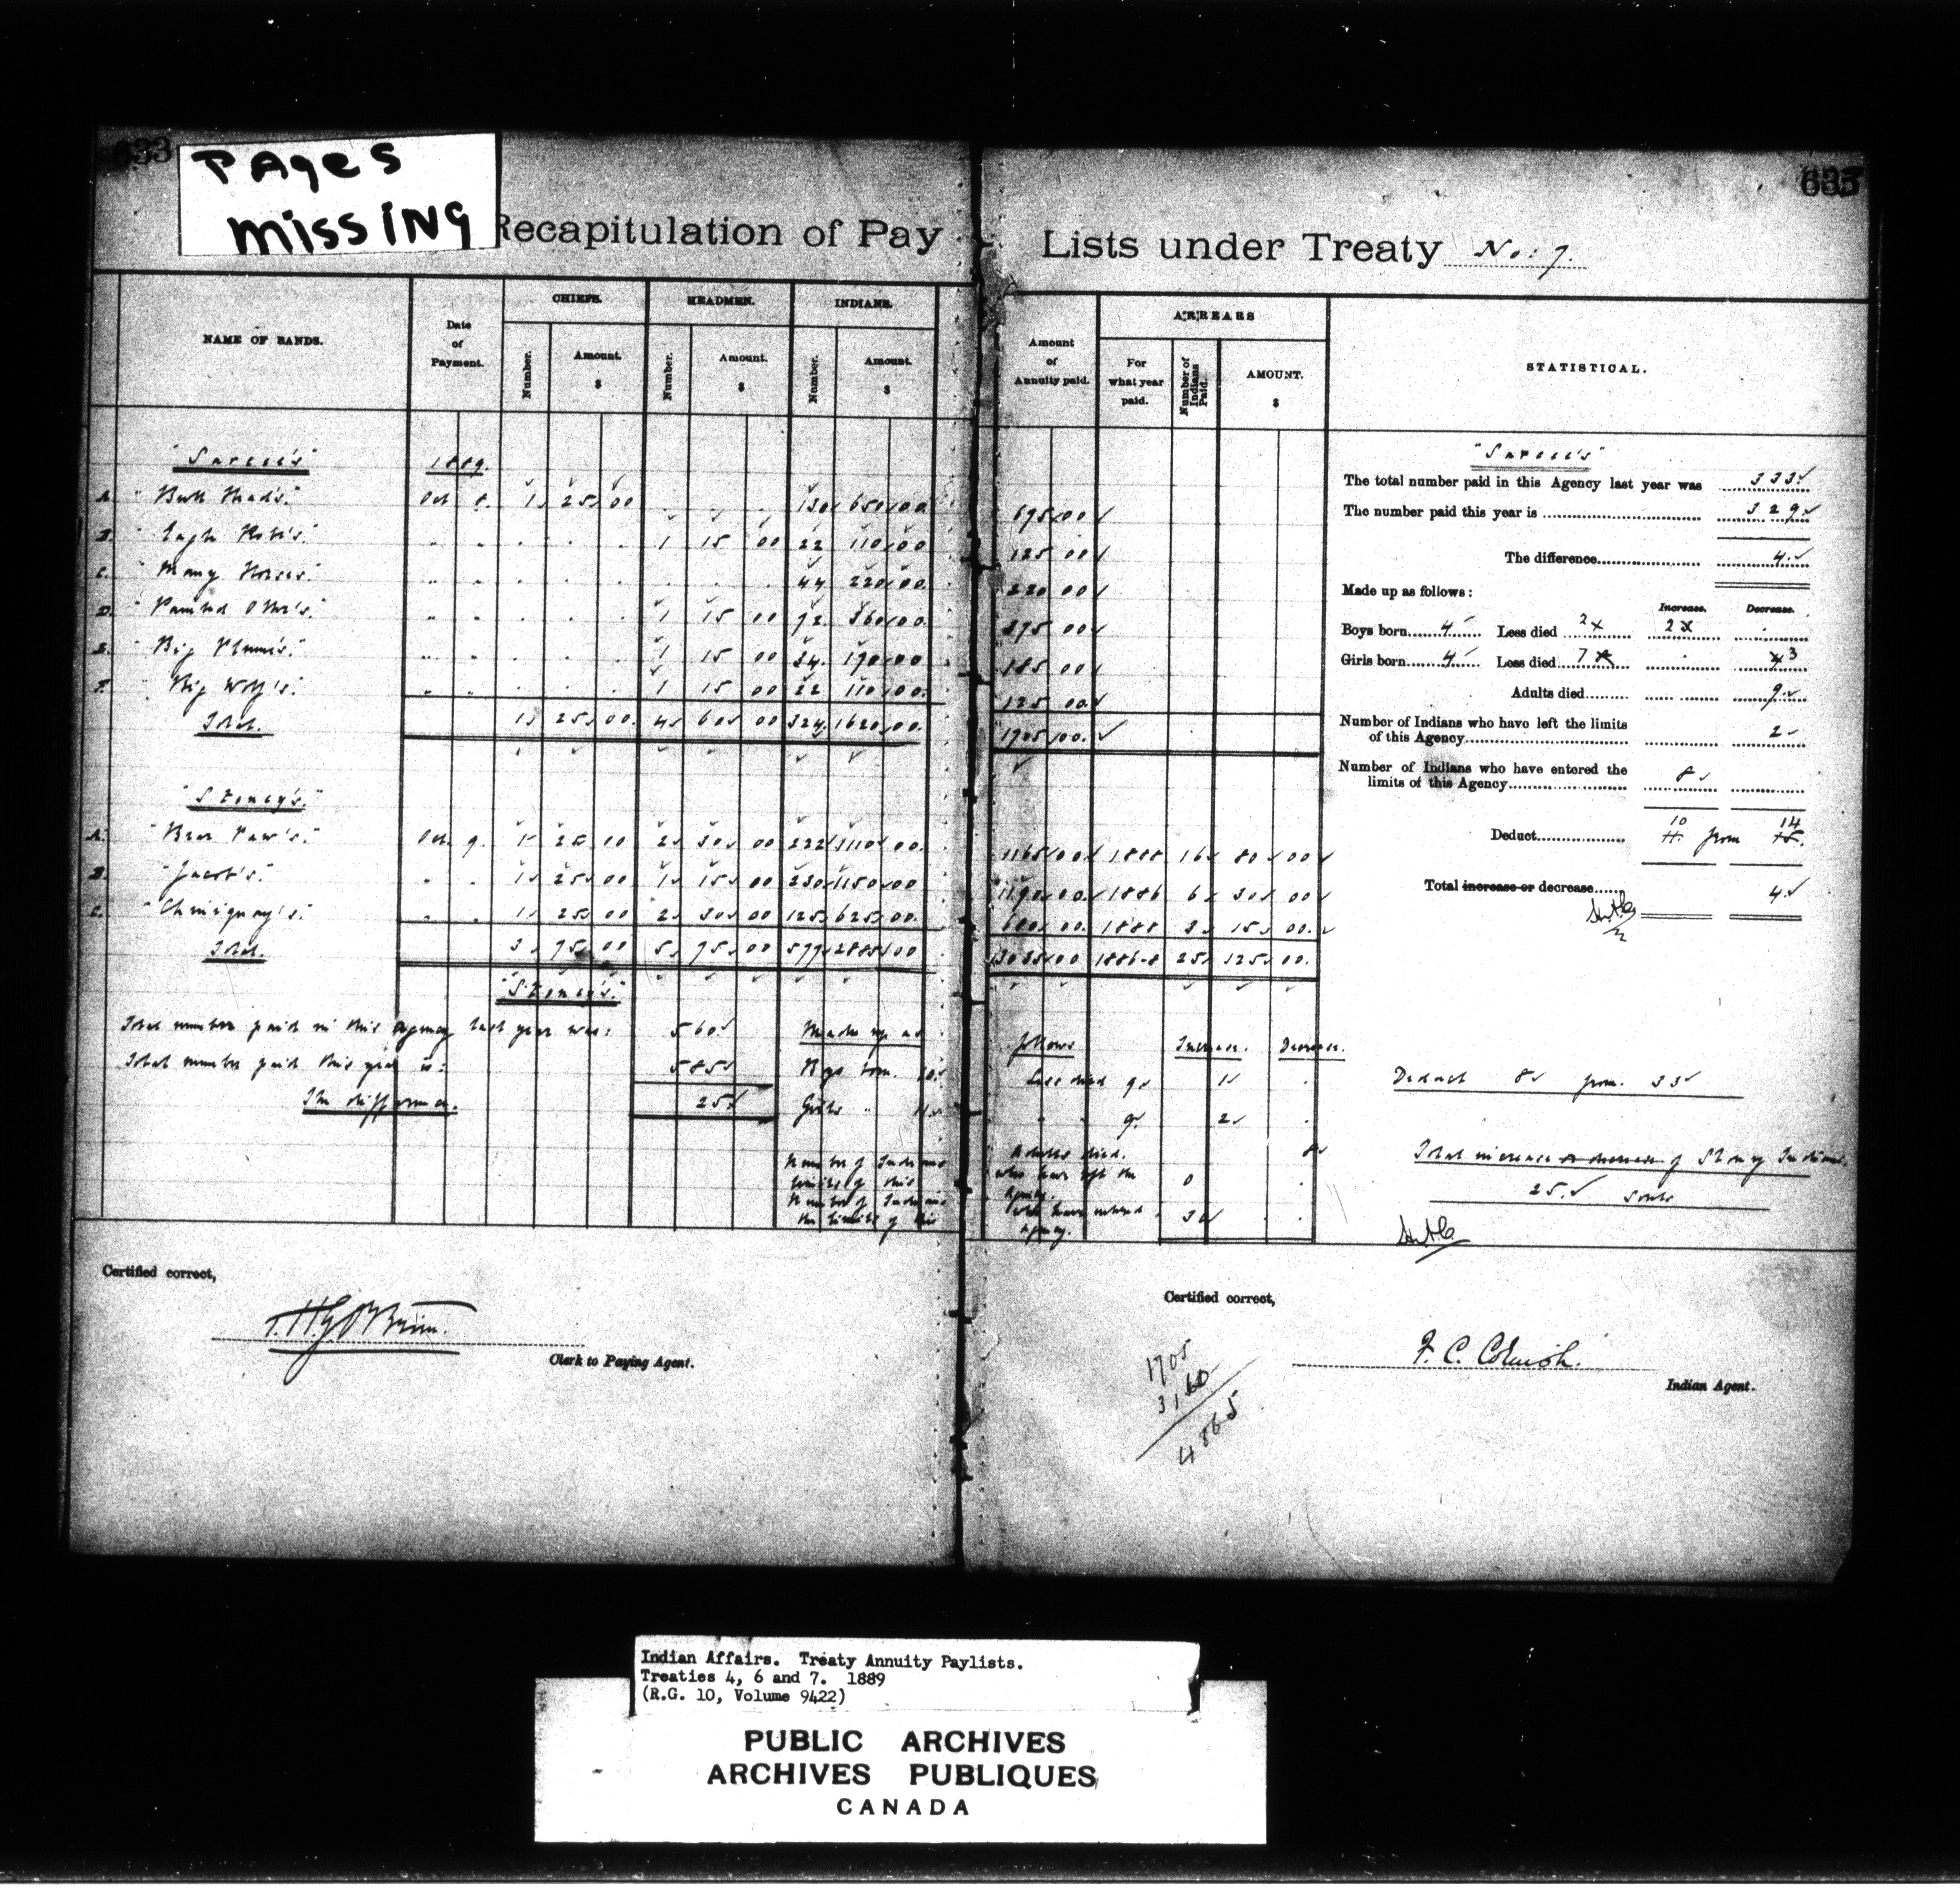 633
PAges
missINg
Recapitulation of Pay Lists under Treaty No: 7.
635
NAME OF BANDS.
Date of Payment.
CHIEFS.
Number.
Amount.
$
HEADMEN.
Number.
Amount.
$
INDIANS.
Number.
Amount.
$
Amount of Annuity paid.
ARREARS
For what year paid.
Number of Indians Paid.
AMOUNT.
$
STATISTICAL.
"Sarcee's" 1889.
A. "Bull Head's." Oct 8. 1 25 00 130 650 00 675 00
B. " Eagle Robe's." " " 1 15 00 22 110 00 125 00
C. " Many Horses." " " 44 220 00 220 00
D. " " " 1 15 00 72 360 00 375 00
E. " Big Plume's." " " 1 15 00 34 170 00 185 00
F. " Big Wolf's." " " 1 15 00 22 110 00 125 00
Total. 1 25 00 4 60 00 324 1620 00 1705 00
"Stoney's."
A. "Bear Paw's." Oct. 9. 1 25 00 2 30 00 222 1110 00 1165 00 1888 16 80 00
B. "Jacob's." " " 1 25 00 1 15 00 230 1150 00 1190 00 1886 6 30 00
C. "Chiniquay's." " " 1 25 00 2 30 00 125 625 00 680 00 1888 3 15 00
Total. 3 75 00 5 75 00 577 2885 00 3035 00 1886-8 25 125 00
"Stoney's."
Total number paid in this Agency last year was: 560
Total number paid this year is: 585
The difference. 25
Made up as follows Increase. Decrease.
Boys born. 10 Less died 9 1 .
Girls " 11 " " 9 2 .
Adults died. 8
Number of Indians who have left the limits of this Agency. 0 .
Number of Indians who have entered the limits of this Agency. 30 .
"Sarcee's"
The total number paid in this Agency last year was 333
The number paid this year is 329
The difference 4
Made up as follows:
Increase. Decrease.
Boys born 4 Less died 2 2 .
Girls born 4 Less died 7 . 3
Adults died 9
Number of Indians who have left the limits of this Agency 2
Number of Indians who have entered the limits of this Agency 8
Deduct 10 from 14
Total increase or decrease 4
Deduct 8 from 33
Total increase or decrease of Stoney Indians.
25 souls
Certified correct,
T. H. G. O'Brien.
Clerk to Paying Agent.
Certified correct,
F. C. Cornish.
Indian Agent.
1705
3160
4865
Indian Affairs. Treaty Annuity Paylists.
Treaties 4, 6 and 7. 1889
(R.G. 10, Volume 9422)
PUBLIC ARCHIVES
ARCHIVES PUBLIQUES
CANADA